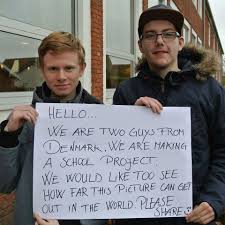 HELLO...
WE ARE TWO GUYS FROM
DENMARK. WE ARE MAKING
A SCHOOL PROJECT.
WE WOULD LIKE TOO SEE
HOW FAR THIS PICTURE CAN GET
OUT IN THE WORLD. PLEASE
SHARE